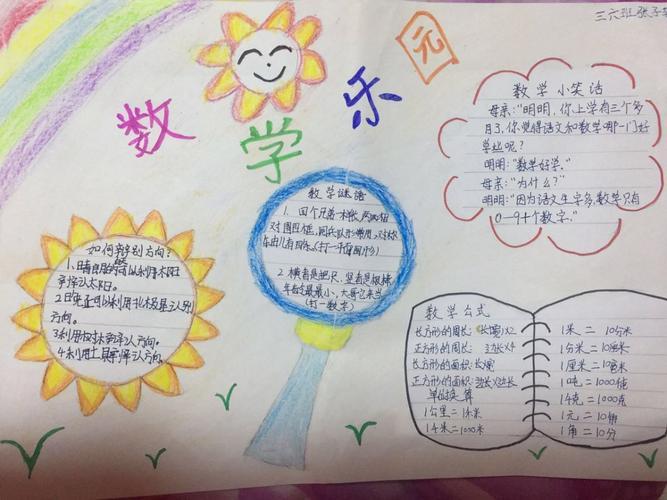 三六班张子
数学乐元
数学小笑话
母亲:"明明,你上学有三个多
月了,你觉得语文和数学哪一门好
学些呢?
明明:"数学好学。"
母亲:"为什么?"
明明:"因为语文生字多,数学只有
0—9十个数字。"
数学谜语
1、四个兄弟一样长,两两相
对围四框,
对称
(打一平面图形)
2、横看是把尺,竖看是根棒,
年龄它最小,大哥它来当
(打一数字)
如何辨别方向?
1、晴朗的可以利用太阳
辨认太阳。
方向。
3、利用树木辨认方向。
4、利用工具辨认方向。
数学公式
长方形的周长:长宽×2
正方形的周长:边长×4
长方形的面积:长宽
正方形的面积:边长×边长
单位换算
1公里=1千米
1千米=1000米
1米=10分米
1分米=10厘米
1厘米=10毫米
1吨=1000千克
1千克=1000克
1元=10角
1角=10分